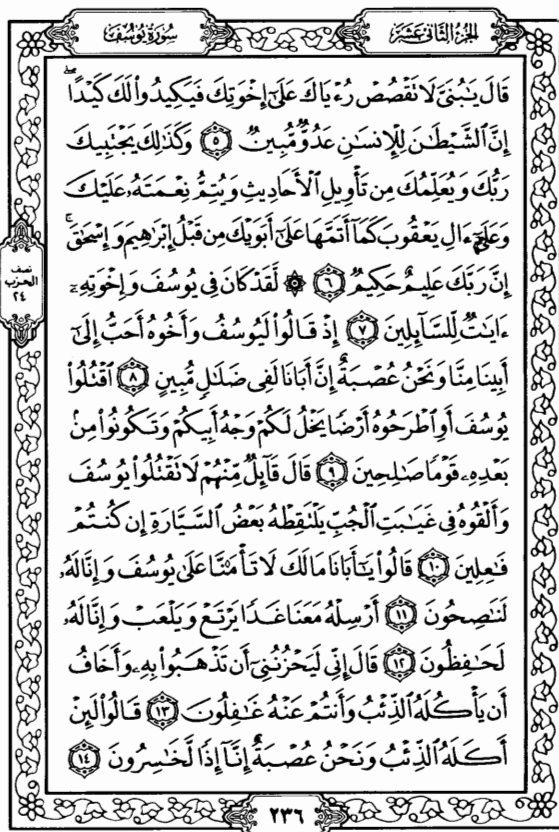 الجزء الثاني عشر
سورة يوسف
قَالَ يَٰبُنَىَّ لَا تَقْصُصْ رُءْيَاكَ عَلَىٰٓ إِخْوَتِكَ فَيَكِيدُوا۟ لَكَ كَيْدًا ۖ
إِنَّ ٱلشَّيْطَٰنَ لِلْإِنسَٰنِ عَدُوٌّ مُّبِينٌ ٥ وَكَذَٰلِكَ يَجْتَبِيكَ
رَبُّكَ وَيُعَلِّمُكَ مِن تَأْوِيلِ ٱلْأَحَادِيثِ وَيُتِمُّ نِعْمَتَهُۥ عَلَيْكَ
وَعَلَىٰٓ ءَالِ يَعْقُوبَ كَمَآ أَتَمَّهَا عَلَىٰٓ أَبَوَيْكَ مِن قَبْلُ إِبْرَٰهِيمَ وَإِسْحَٰقَ ۚ
إِنَّ رَبَّكَ عَلِيمٌ حَكِيمٌ ٦ ۞ لَّقَدْ كَانَ فِى يُوسُفَ وَإِخْوَتِهِۦٓ
ءَايَٰتٌ لِّلسَّآئِلِينَ ٧ إِذْ قَالُوا۟ لَيُوسُفُ وَأَخُوهُ أَحَبُّ إِلَىٰٓ
أَبِينَا مِنَّا وَنَحْنُ عُصْبَةٌ إِنَّ أَبَانَا لَفِى ضَلَٰلٍ مُّبِينٍ ٨ ٱقْتُلُوا۟
يُوسُفَ أَوِ ٱطْرَحُوهُ أَرْضًا يَخْلُ لَكُمْ وَجْهُ أَبِيكُمْ وَتَكُونُوا۟ مِنۢ
بَعْدِهِۦ قَوْمًا صَٰلِحِينَ ٩ قَالَ قَآئِلٌ مِّنْهُمْ لَا تَقْتُلُوا۟ يُوسُفَ
وَأَلْقُوهُ فِى غَيَٰبَتِ ٱلْجُبِّ يَلْتَقِطْهُ بَعْضُ ٱلسَّيَّارَةِ إِن كُنتُمْ
فَٰعِلِينَ ١٠ قَالُوا۟ يَٰٓأَبَانَا مَا لَكَ لَا تَأْمَ۫نَّا عَلَىٰ يُوسُفَ وَإِنَّا لَهُۥ
لَنَٰصِحُونَ ١١ أَرْسِلْهُ مَعَنَا غَدًا يَرْتَعْ وَيَلْعَبْ وَإِنَّا لَهُۥ
لَحَٰفِظُونَ ١٢ قَالَ إِنِّى لَيَحْزُنُنِىٓ أَن تَذْهَبُوا۟ بِهِۦ وَأَخَافُ
أَن يَأْكُلَهُ ٱلذِّئْبُ وَأَنتُمْ عَنْهُ غَٰفِلُونَ ١٣ قَالُوا۟ لَئِنْ
أَكَلَهُ ٱلذِّئْبُ وَنَحْنُ عُصْبَةٌ إِنَّآ إِذًا لَّخَٰسِرُونَ ١٤
نصف
الحزب
٢٤
٢٣٦